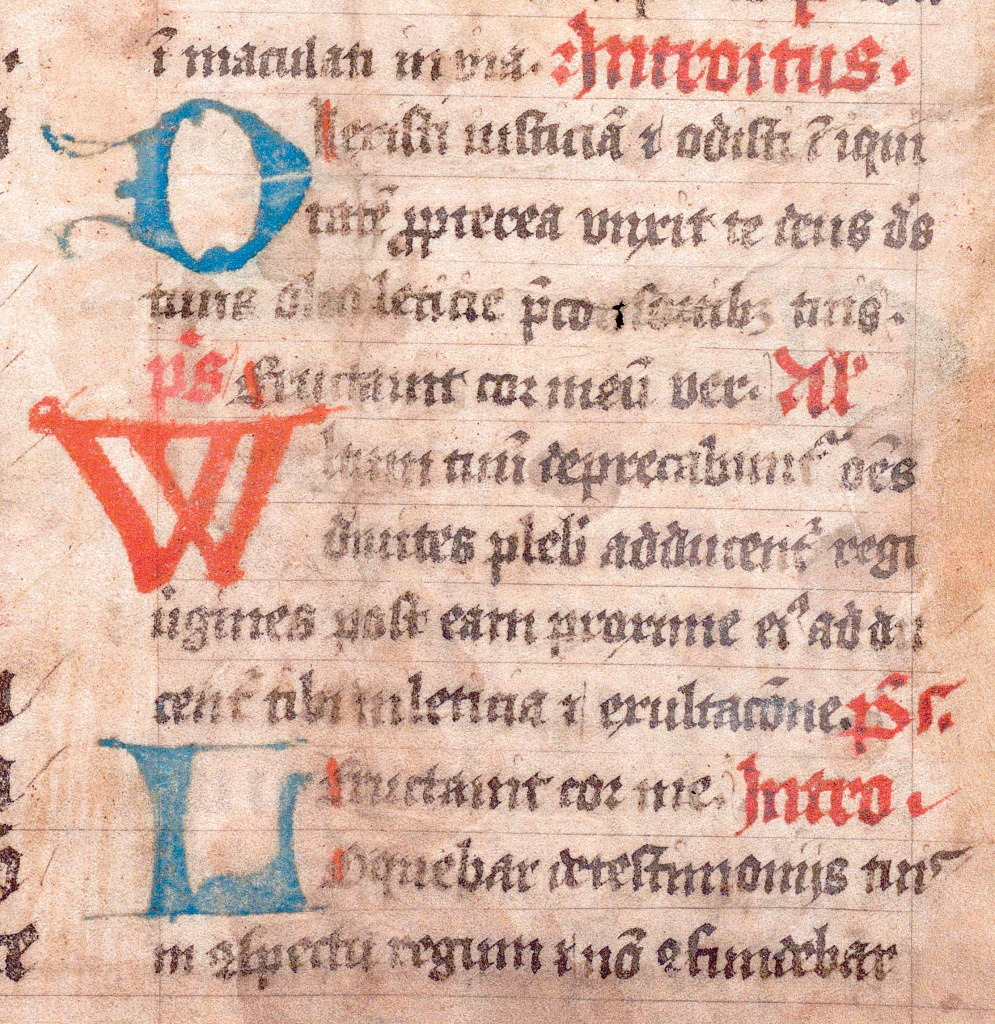 ī maculati in via. Introitus.
Dilexisti iusticiā ⁊ odisti ī iqui
tatē ꝓpterea vnxit te deus ds̄
tuus oleo leticie p̄ consortibꝫ tuis.
ps̄ Eructauit cor meū ver. All'
Wltum tuū deprecabunt᷑ oēs
diuites pleb᷒ adducent᷑ regi
ūgines post eam proxime ei᷒ addu
cent᷑ tibi in leticia ⁊ exultacōne. ps̄ s.
Eructauit cor me. Intro.
Loquebar de testimonijs tuis
in ꝯspectu regum ⁊ nō ꝯfundebar